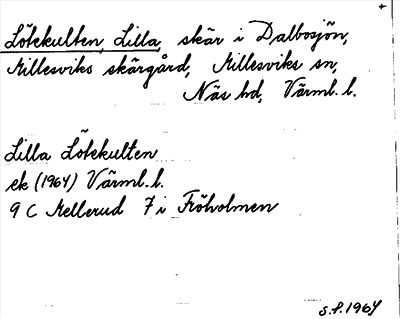 Lötekulten, Lilla, skär i Dalbosjön,
Millesviks skärgård, Millesviks sn,
Näs hd, Värml. l.
Lilla Lötekulten
ek (1964) Värml. l.
9 C Mellerud 7 i Fröholmen
S.P. 1964